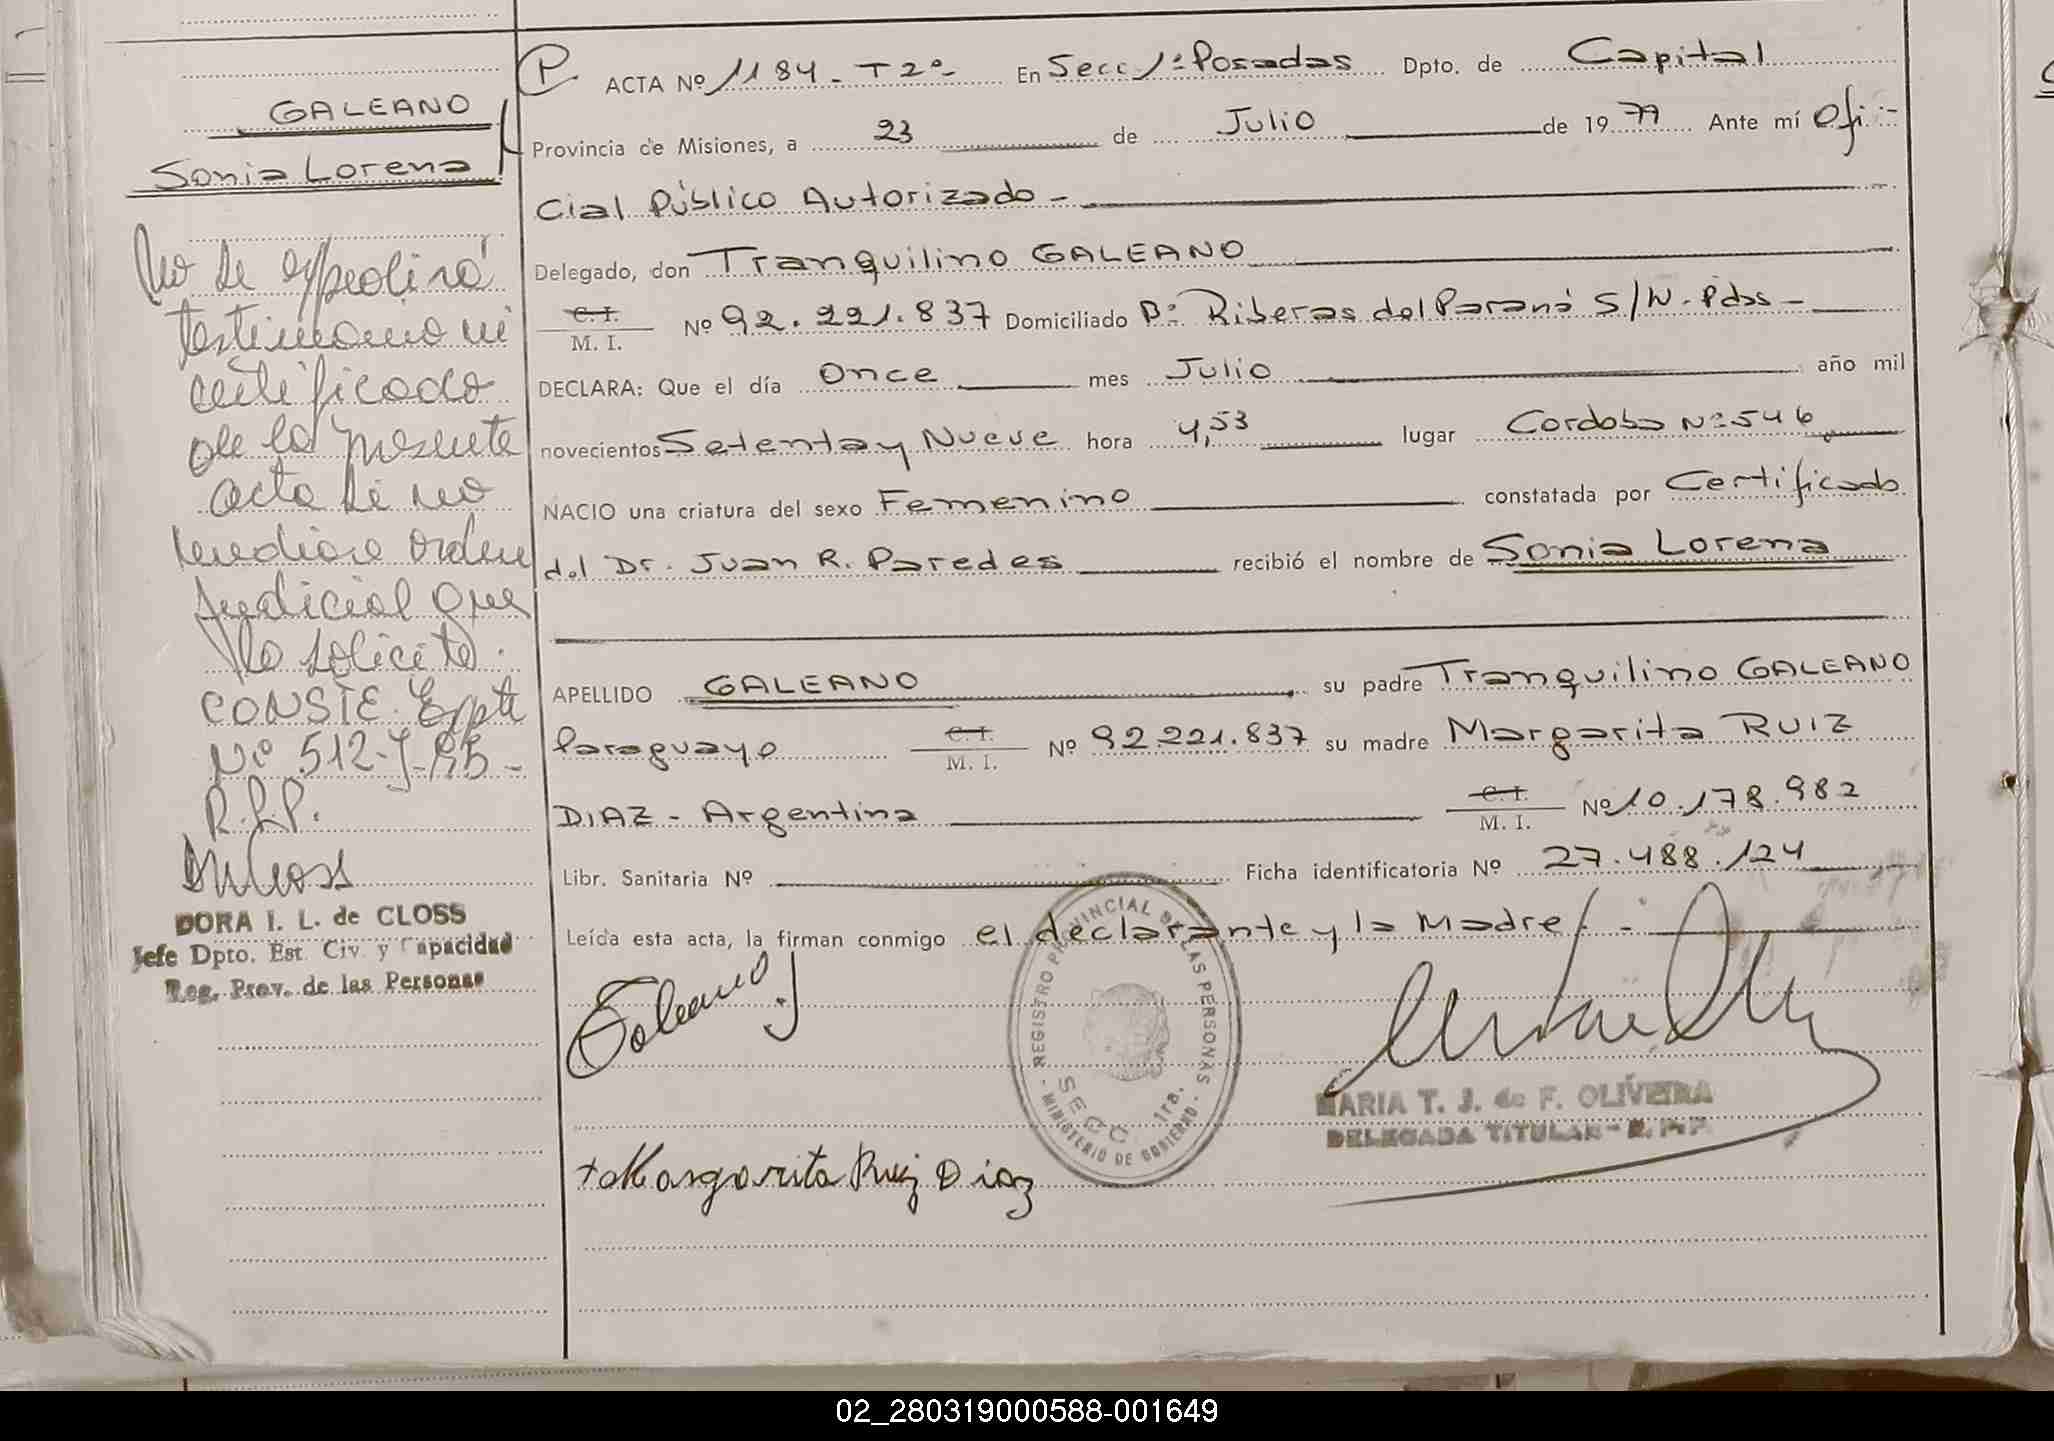 GALEANO
Sonia Lorena
No se expedirá
testimonio ni
certificado
de la presente
acta si no
mediare orden
judicial que
lo solicite.
CONSTE. Expte
Nº 512-J-85-
R.P.P.
DORA I. L. de CLOSS
Jefe Dpto. Est. Civ. y Capacidad
Reg. Prov. de las Personas
P. ACTA Nº 1184 - T 2º - En Secc 1ª Posadas Dpto. de Capital
Provincia de Misiones, a 23 de Julio de 19 79 Ante mí Ofi-
cial Público Autorizado -
Delegado, don Tranquilino GALEANO
C. I.
M. I. Nº 92.221.837 Domiciliado Bº Riberas del Paraná S/N. Pdas -
DECLARA: Que el día Once mes Julio año mil
novecientos Setenta y Nueve hora 4,53 lugar Cordoba Nº 546
NACIO una criatura del sexo Femenino constatada por Certificado
del Dr. Juan R. Paredes recibió el nombre de Sonia Lorena
APELLIDO GALEANO su padre Tranquilino GALEANO
Paraguayo C. I. M. I. Nº 92.221.837 su madre Margarita RUIZ
DIAZ - Argentina C. I. M. I. Nº 10.178.982
Libr. Sanitaria Nº Ficha identificatoria Nº 27.488.124
Leída esta acta, la firman conmigo el declarante y la Madre/. -
Galeano
REGISTRO PROVINCIAL DE LAS PERSONAS
SECC. 1ra.
- MINISTERIO DE GOBIERNO -
MARIA T. J. de F. OLIVEIRA
DELEGADA TITULAR - R. P. P.
Margarita Ruiz Diaz
02_280319000588-001649